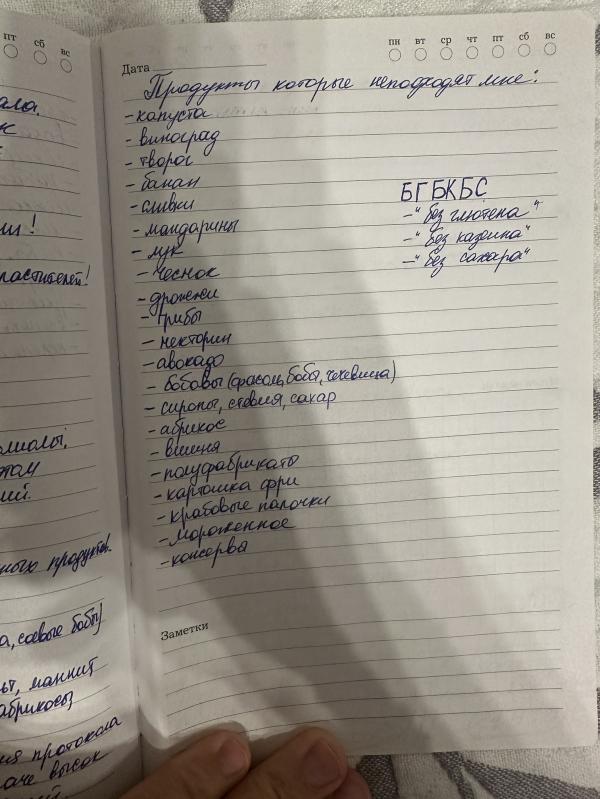 пт сб вс
ала.
к
ии!
ластителей!
этом
ний.
продуктов.
а, соевые бобы)
ьт, маннит
абрикосы)
ия протокола
аче высок
Дата
пн вт ср чт пт сб вс
Продукты которые неподходят мне:
- капуста
- виноград
- творог
- банан
- сливки
- мандарины
- лук
- чеснок
- дрожжи
- грибы
- некторин
- авокадо
- бобовы (фасоль, бобы, чечевица)
- сиропы, стевия, сахар
- абрикос
- вишня
- полуфабрикаты
- картошка фри
- крабовые палочки
- мороженное
- консервы
БГБКБС
- "без глютена"
- "без казеина"
- "без сахара"
Заметки